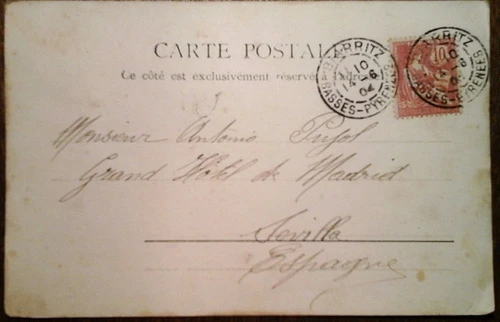 CARTE POSTALE
Ce côté est exclusivement réservé à l'adresse
BIARRITZ
10
14 -8
04
BASSES-PYRENEES
10
BIARRITZ
10
04
BASSES-PYRENEES
Monsieur Antonio Pujol
Grand Hôtel de Madrid
Sevilla
Espagne